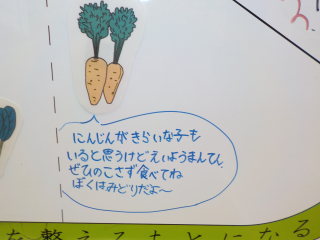 にんじんがきらいな子も
いると思うけどえいようまんてん
ぜひのこさず食べてね
ぼくはみどりだよ〜
を整えることになる